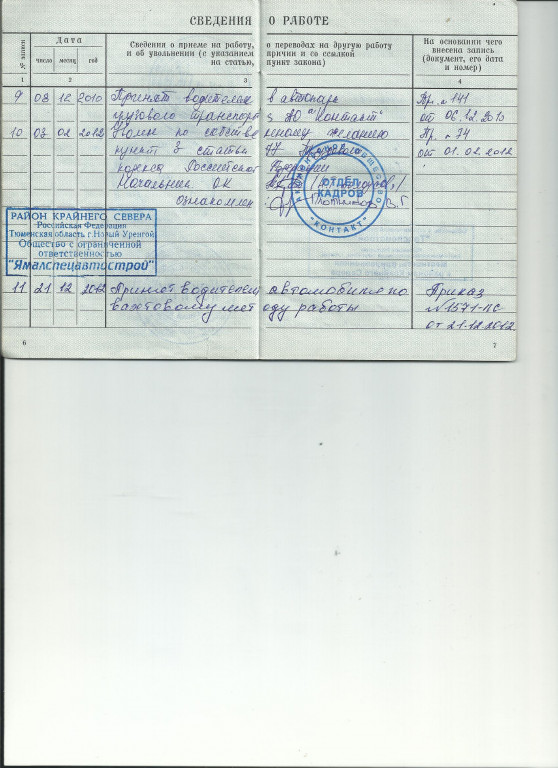 СВЕДЕНИЯ О РАБОТЕ
№ записи
Дата
число месяц год
Сведения о приеме на работу, о переводах на другую работу
и об увольнении (с указанием причин и со ссылкой
на статью, пункт закона)
На основании чего
внесена запись
(документ, его дата
и номер)
1 2 3 4
9 08 12 2010 Принят водителем в автопарк Пр. № 141
грузового транспорта ЗАО "Контакт" от 06.12.2010
10 03 02 2012 Уволен по собственному желанию Пр. № 74
пункт 3 статьи 77 Трудового от 01.02.2012
кодекса Российской Федерации
Начальник ОК
Ознакомлен В.Г.
ОТДЕЛ
КАДРОВ
"КОНТАКТ"
РАЙОН КРАЙНЕГО СЕВЕРА
Российская Федерация
Тюменская область г.Новый Уренгой
Общество с ограниченной
ответственностью
"Ямалспецавтострой"
11 21 12 2012 Принят водителем автомобиля по Приказ
вахтовому методу работы №1571-ЛС
от 21.12.2012
6 7